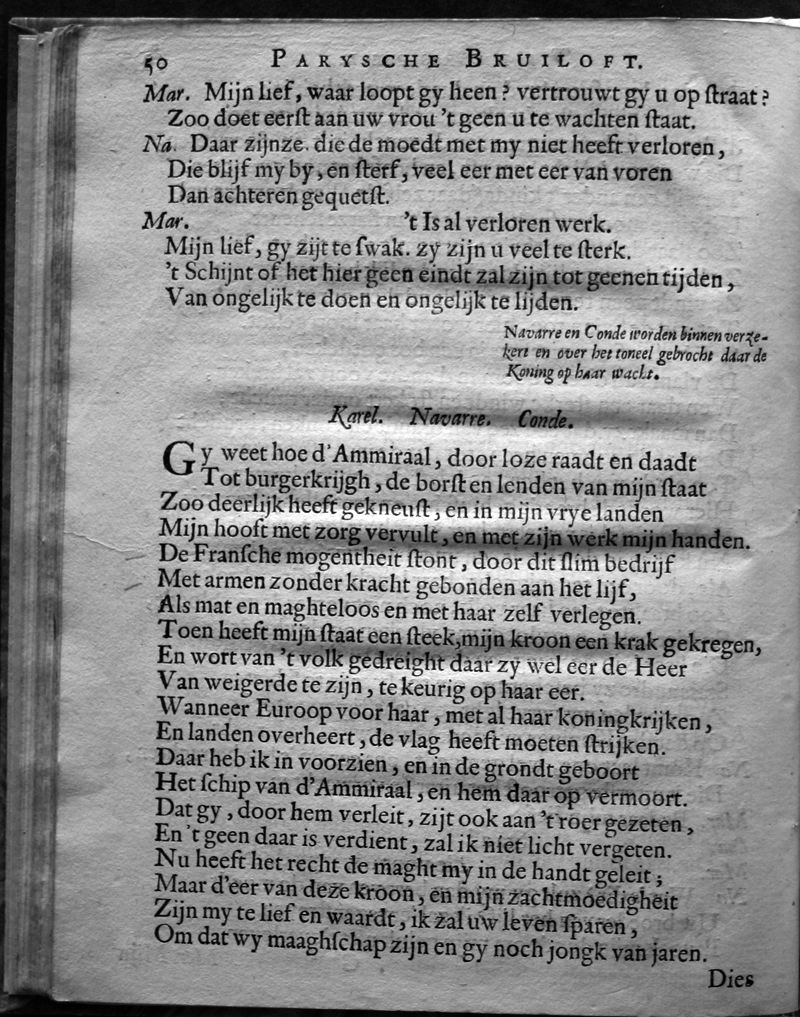 50 PARYSCHE BRUILOFT.
Mar. Mijn lief, waar loopt gy heen? vertrouwt gy u op ſtraat?
Zoo doet eerſt aan uw vrou 't geen u te wachten ſtaat.
Na. Daar zijnze. die de moedt met my niet heeft verloren,
Die blijf my by, en ſterf, veel eer met eer van voren
Dan achteren gequetſt.
Mar. 't Is al verloren werk.
Mijn lief, gy zijt te ſwak. zy zijn u veel te ſterk.
't Schijnt of het hier geen eindt zal zijn tot geenen tijden,
Van ongelijk te doen en ongelijk te lijden.
Navarre en Conde worden binnen verze-
kert en over het toneel gebrocht daar de
Koning op haar wacht.
Karel. Navarre. Conde.
Gy weet hoe d'Ammiraal, door loze raadt en daadt
Tot burgerkrijgh, de borſt en lenden van mijn ſtaat
Zoo deerlijk heeft gekneuſt, en in mijn vrye landen
Mijn hooft met zorg vervult, en met zijn werk mijn handen.
De Franſche mogentheit ſtont, door dit ſlim bedrijf
Met armen zonder kracht gebonden aan het lijf,
Als mat en maghteloos en met haar zelf verlegen.
Toen heeft mijn ſtaat een ſteek, mijn kroon een krak gekregen,
En wort van 't volk gedreight daar zy wel eer de Heer
Van weigerde te zijn, te keurig op haar eer.
Wanneer Euroop voor haar, met al haar koningkrijken,
En landen overheert, de vlag heeft moeten ſtrijken.
Daar heb ik in voorzien, en in de grondt geboort
Het ſchip van d'Ammiraal, en hem daar op vermoort.
Dat gy, door hem verleit, zijt ook aan 't roer gezeten,
En 't geen daar is verdient, zal ik niet licht vergeten.
Nu heeft het recht de maght my in de handt geleit;
Maar d'eer van deze kroon, en mijn zachtmoedigheit
Zijn my te lief en waardt, ik zal uw leven ſparen,
Om dat wy maaghſchap zijn en gy noch jongk van jaren.
Dies